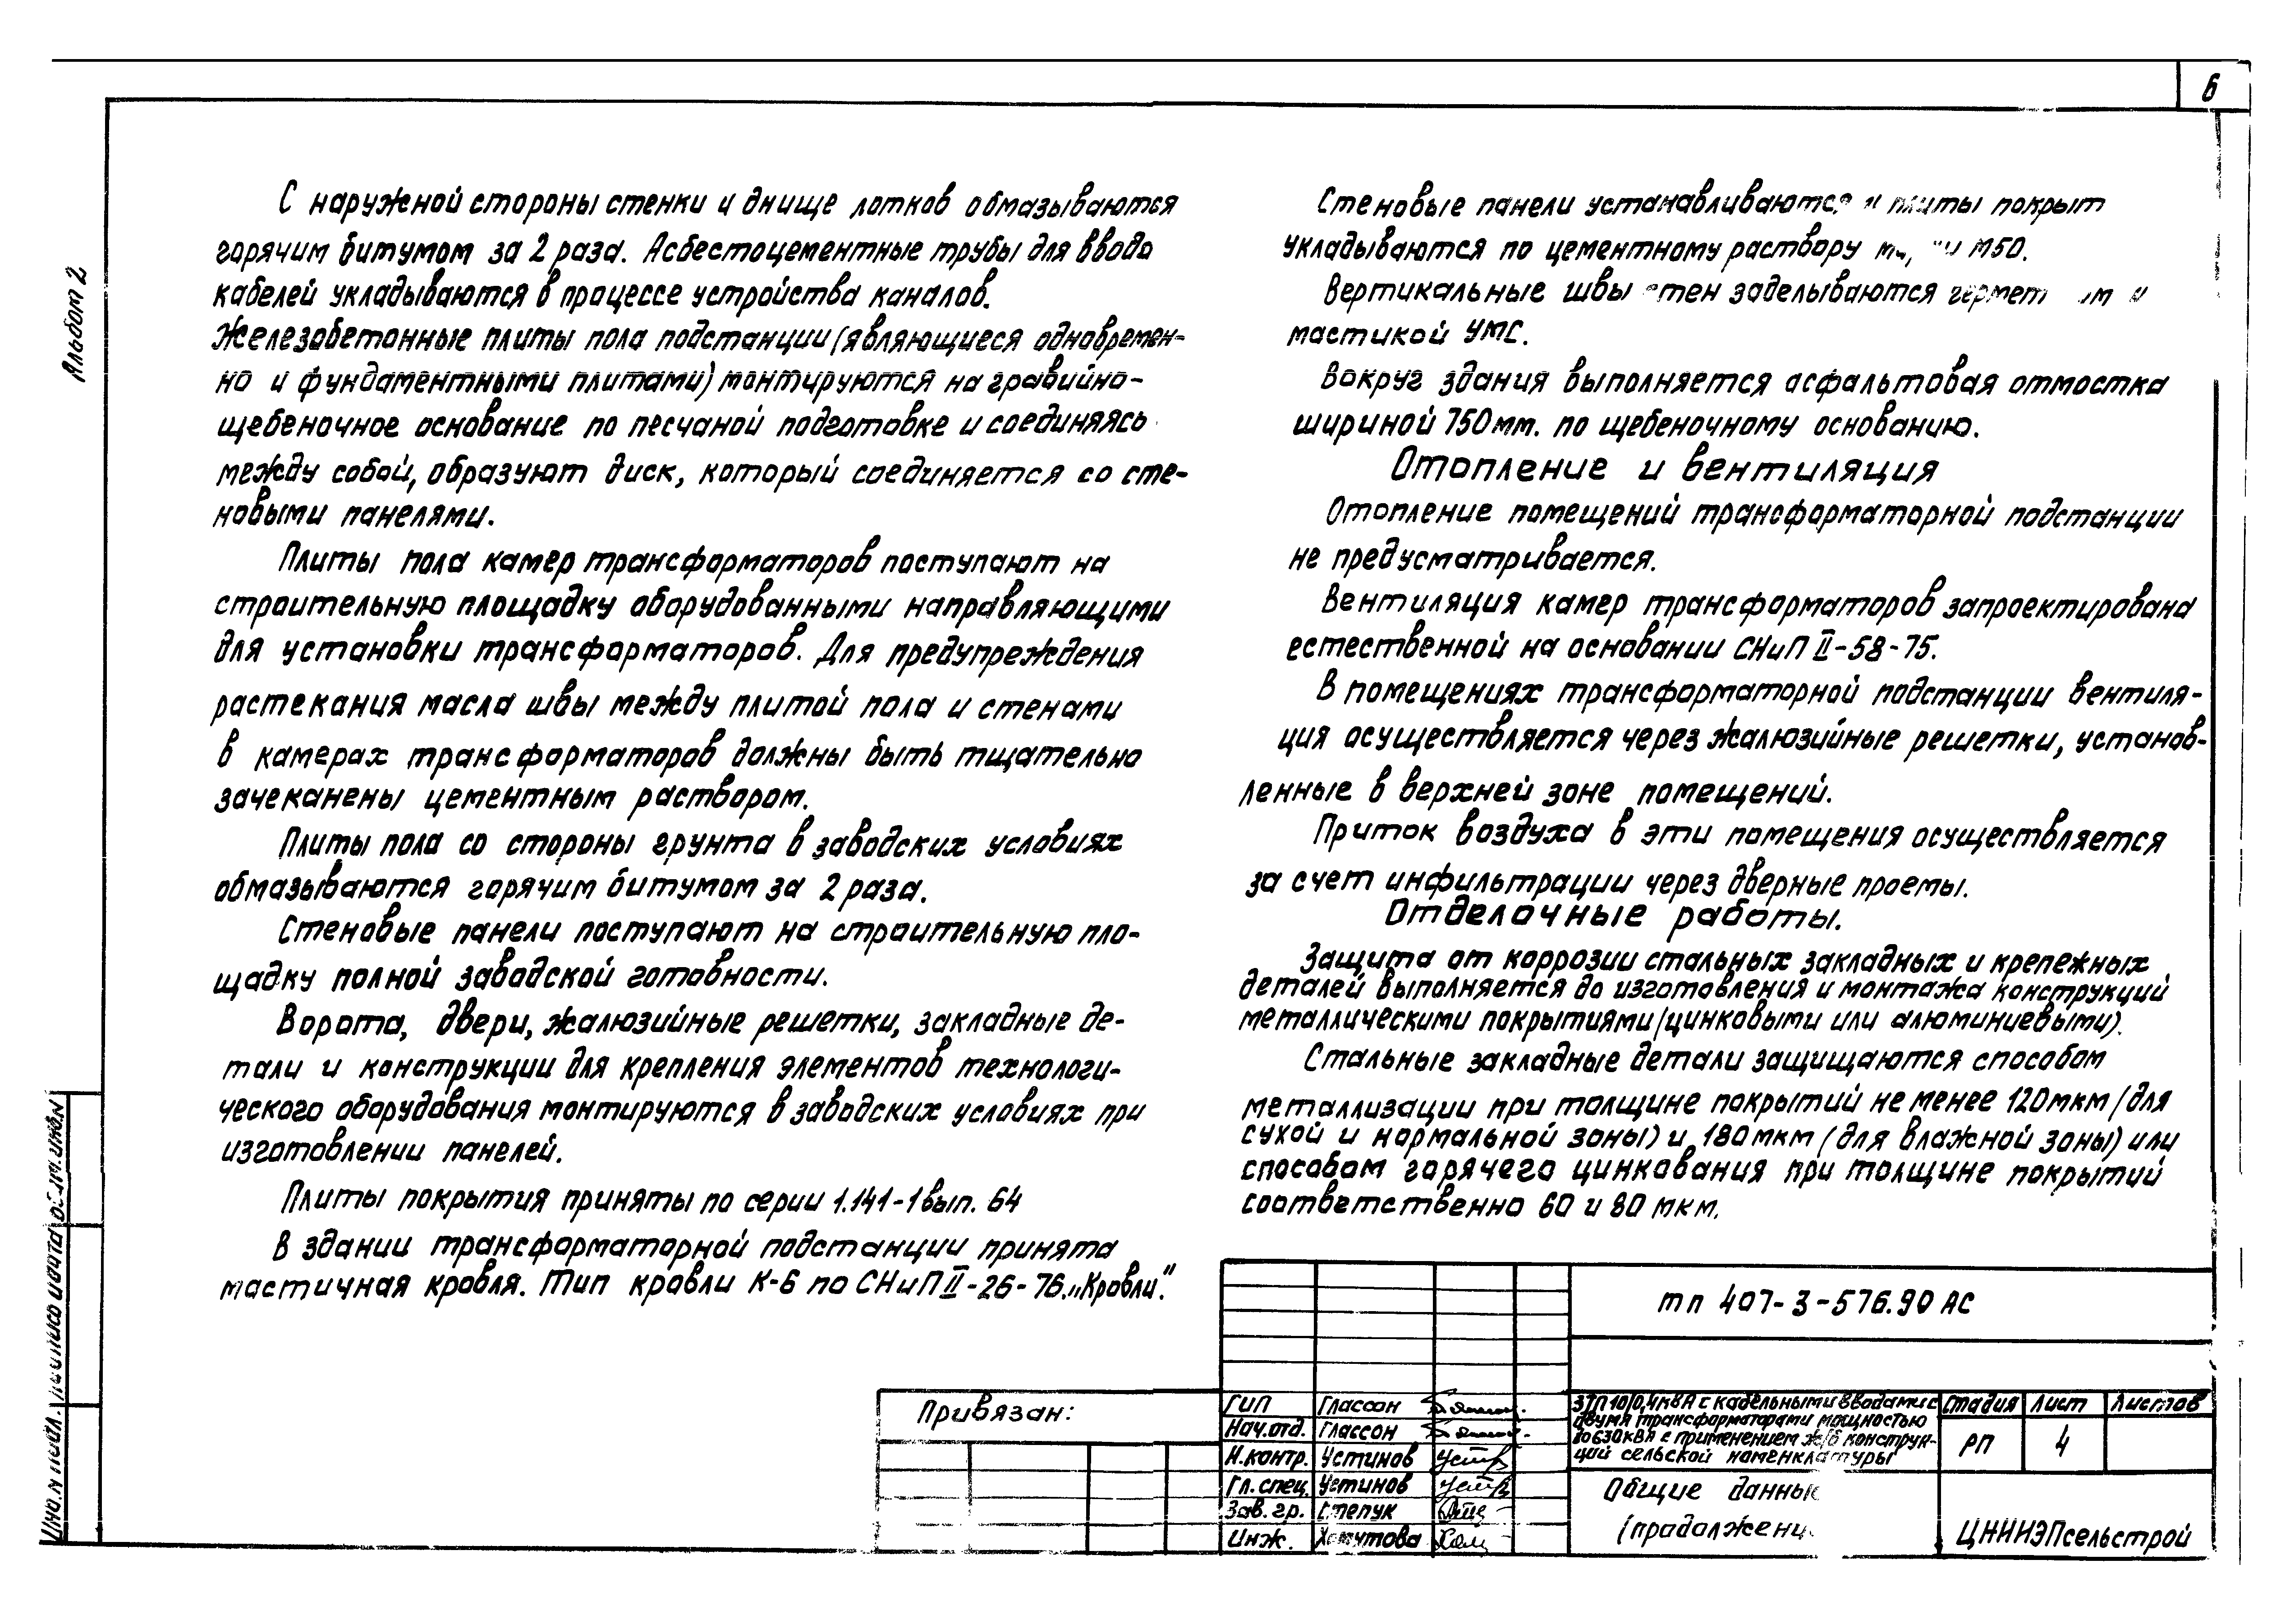 6
Альбом 2
С наружной стороны стенки и днище лотков обмазываются
горячим битумом за 2 раза. Асбестоцементные трубы для ввода
кабелей укладываются в процессе устройства каналов.
Железобетонные плиты пола подстанции (являющиеся одновремен-
но и фундаментными плитами) монтируются на гравийно-
щебеночное основание по песчаной подготовке и соединяясь
между собой, образуют диск, который соединяется со сте-
новыми панелями.
Плиты пола камер трансформаторов поступают на
строительную площадку оборудованными направляющими
для установки трансформаторов. Для предупреждения
растекания масла швы между плитой пола и стенами
в камерах трансформаторов должны быть тщательно
зачеканены цементным раствором.
Плиты пола со стороны грунта в заводских условиях
обмазываются горячим битумом за 2 раза.
Стеновые панели поступают на строительную пло-
щадку полной заводской готовности.
Ворота, двери, жалюзийные решетки, закладные де-
тали и конструкции для крепления элементов технологи-
ческого оборудования монтируются в заводских условиях при
изготовлении панелей.
Плиты покрытия приняты по серии 1.141-1 вып. 64
В здании трансформаторной подстанции принята
мастичная кровля. Тип кровли К-6 по СНиП II-26-76 „Кровли."
Стеновые панели устанавливаются и плиты покрыт
укладываются по цементному раствору М50.
Вертикальные швы стен заделываются и
мастикой УМС.
Вокруг здания выполняется асфальтовая отмостка
шириной 750мм. по щебеночному основанию.
Отопление и вентиляция
Отопление помещений трансформаторной подстанции
не предусматривается.
Вентиляция камер трансформаторов запроектирована
естественной на основании СНиП II-58-75.
В помещениях трансформаторной подстанции вентиля-
ция осуществляется через жалюзийные решетки, установ-
ленные в верхней зоне помещений.
Приток воздуха в эти помещения осуществляется
за счет инфильтрации через дверные проемы.
Отделочные работы.
Защита от коррозии стальных закладных и крепежных
деталей выполняется до изготовления и монтажа конструкций
металлическими покрытиями (цинковыми или алюминиевыми).
Стальные закладные детали защищаются способом
металлизации при толщине покрытий не менее 120мкм (для
сухой и нормальной зоны) и 180мкм (для влажной зоны) или
способом горячего цинкования при толщине покрытий
соответственно 60 и 80 мкм.
тп 407-3-576.90 АС
Привязан:
ГИП Глассон
Нач.отд. Глассон
Н.контр. Устинов
Гл.спец. Устинов
Зав.гр. Степук
Инж. Хомутова
ЗТП 10/0,4кВА с кабельными вводами с
двумя трансформаторами мощностью
до 630кВА с применением ж/б конструк-
ций сельской номенклатуры
Стадия Лист Листов
РП 4
Общие данные
(продолжени
ЦНИИЭПсельстрой
Инв.N подл. Подпись и дата Взам.инв.N